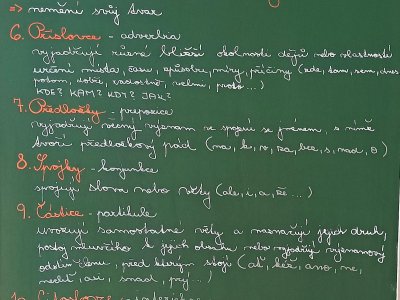 => nemění svůj tvar
6. Příslovce - adverbia
vyjadřují různé bližší okolnosti dějů nebo vlastností
určení místa, času, způsobu, míry, příčiny (zde, tam, sem, dnes
potom, dobře, radostně, velmi, proto...)
KDE? KAM? KDY? JAK?
7. Předložky - prepozice
vyjadřují věcný význam ve spojení se jménem, s nímž
tvoří předložkový pád (na, k, v, za, bez, s, nad, o)
8. Spojky - konjunkce
spojují slova nebo věty (ale, i, a, že ...)
9. Částice - partikule
uvozují samostatné věty a naznačují jejich druh,
postoj mluvčího k jejich obsahu nebo vyjadřují významový
odstín členu, před kterým stojí (ať, kéž, ano, ne,
nechť, asi, snad, prý...)
10. Citoslovce -